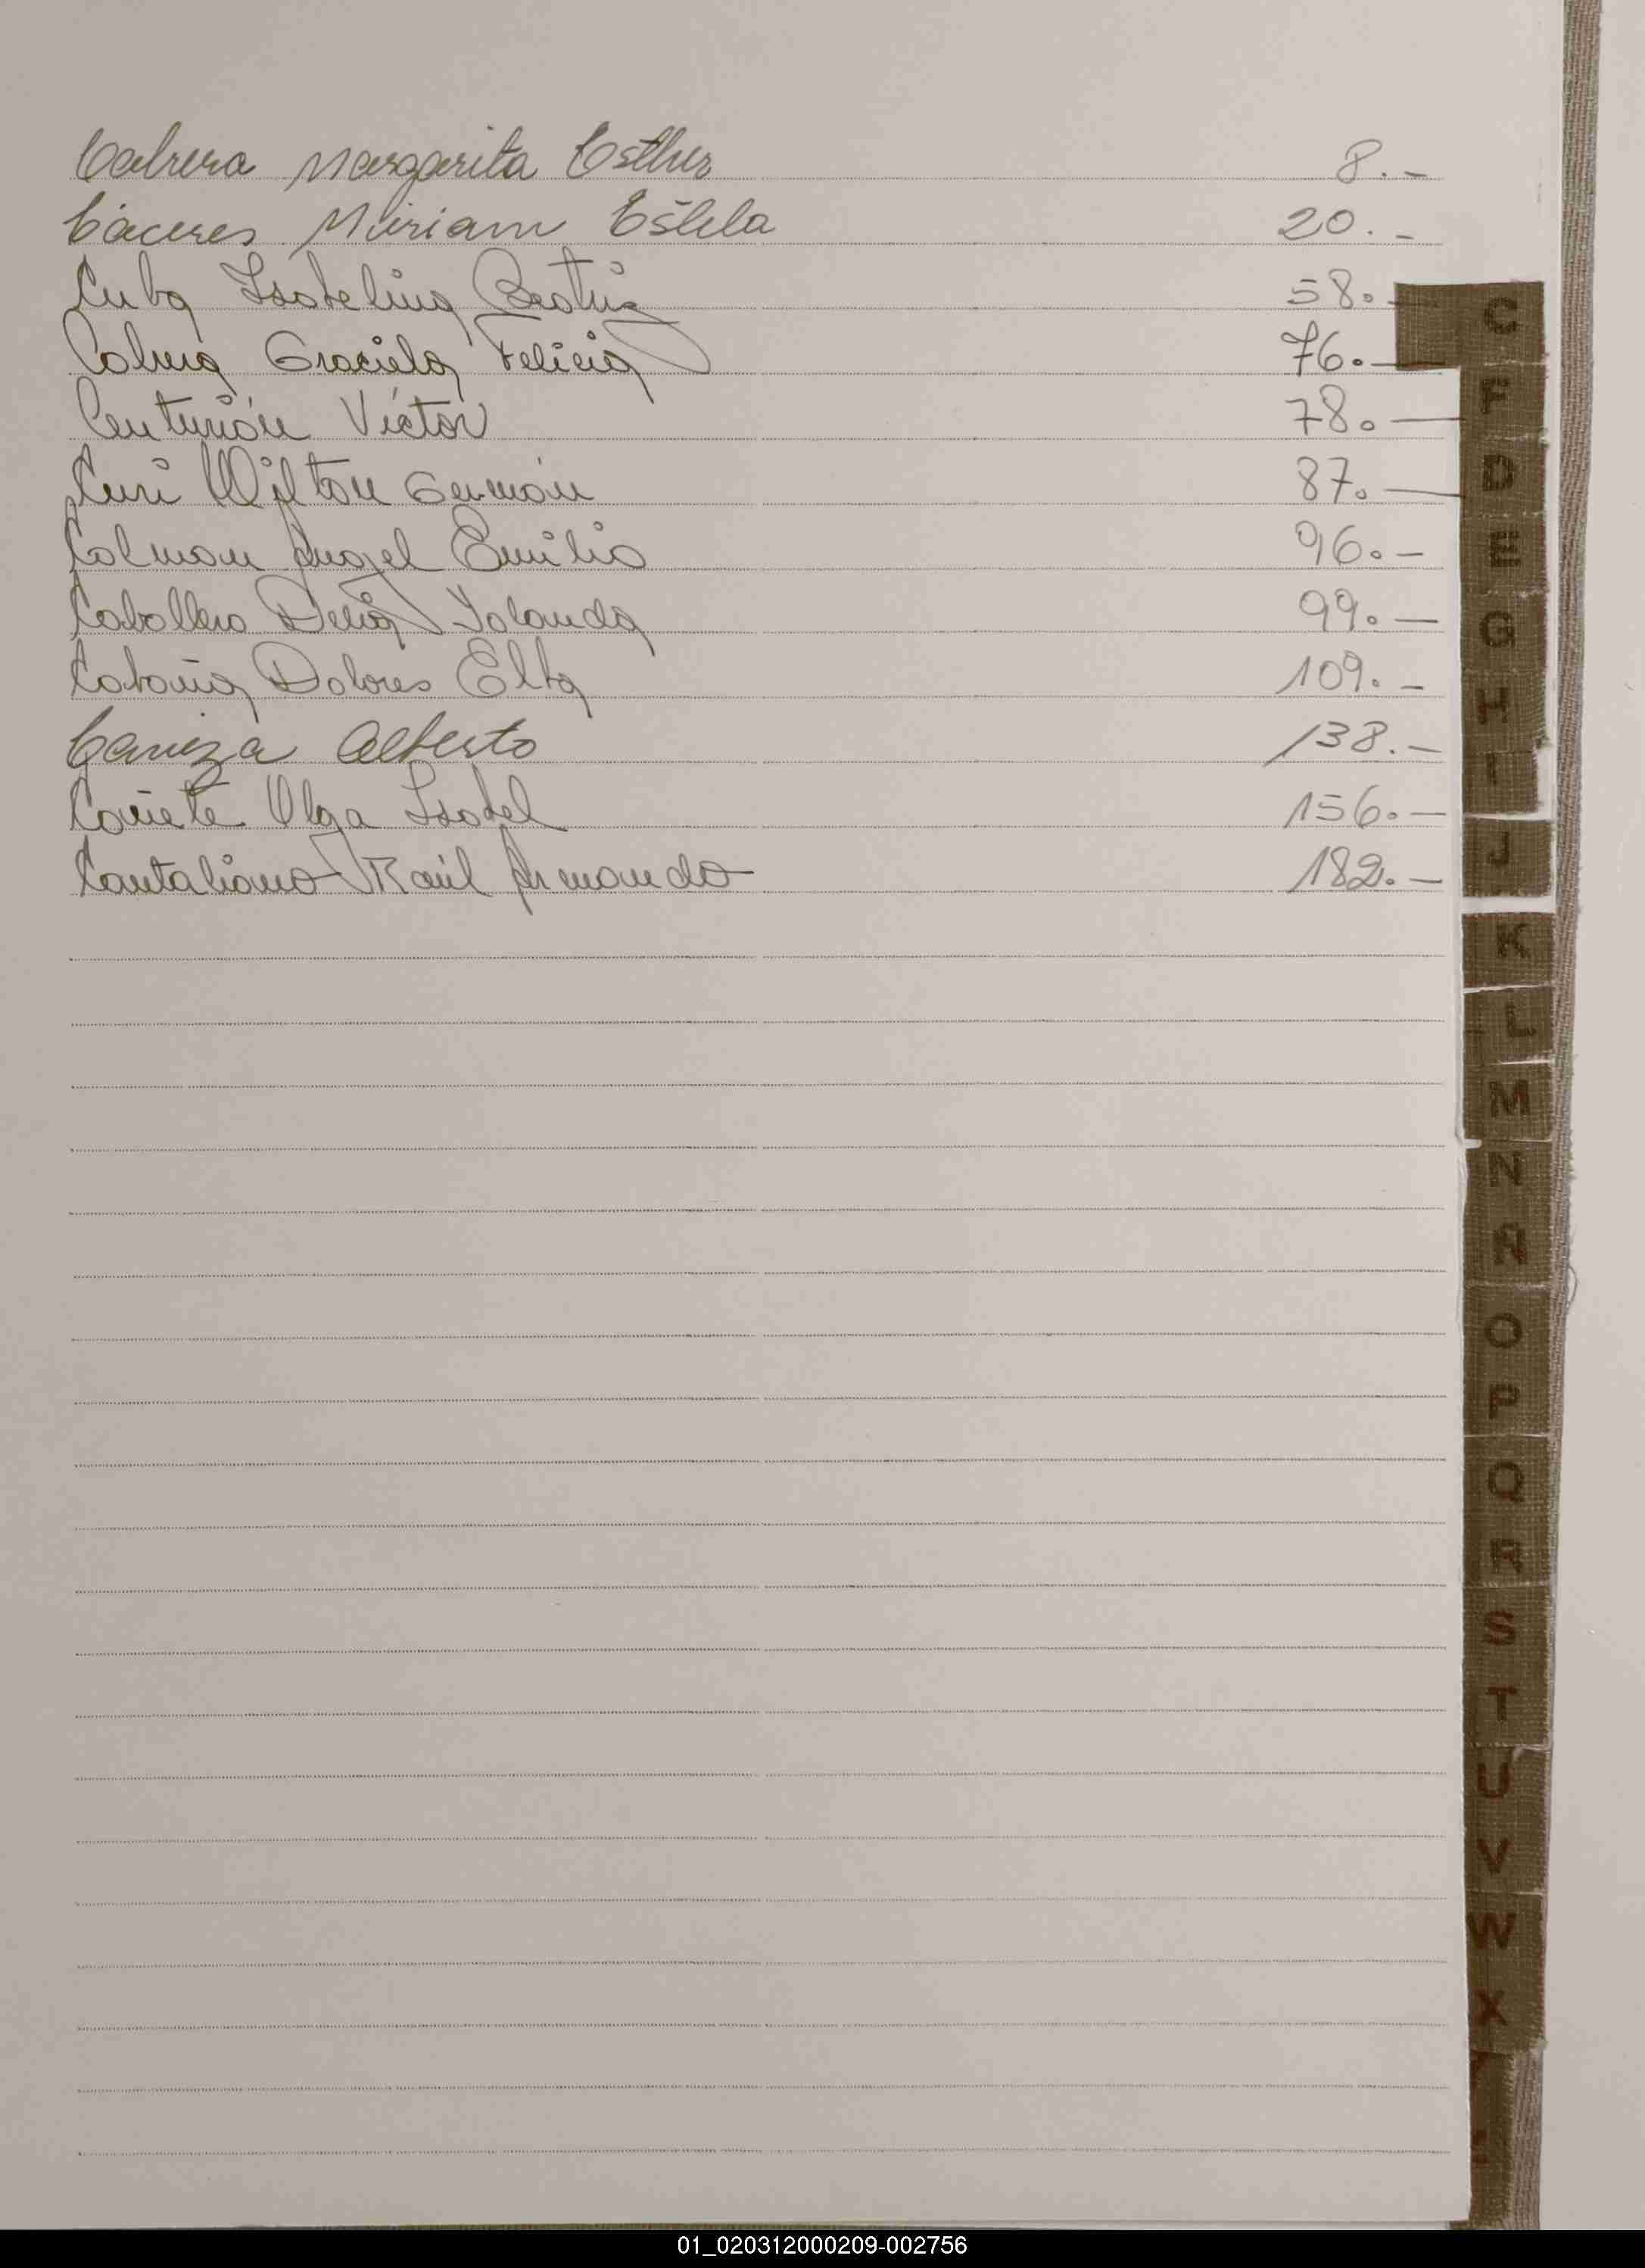 Cabrera Margarita Esther 8.-
Cáceres Miriam Estela 20.-
Cuba Isabelina Beatriz 58.-
Graciela Felicia 76.-
Centurión Víctor 78.-
Curi Wilton Germán 87.-
Colman Angel Emilio 96.-
Caballero Delia Yolanda 99.-
Dolores Elba 109.-
Caniza Alberto 138.-
Cañete Olga Isabel 156.-
Cantaliano Raúl Armando 182.-
C
F
D
E
G
H
I
J
K
L
M
N
Ñ
O
P
Q
R
S
T
U
V
W
X
01_020312000209-002756